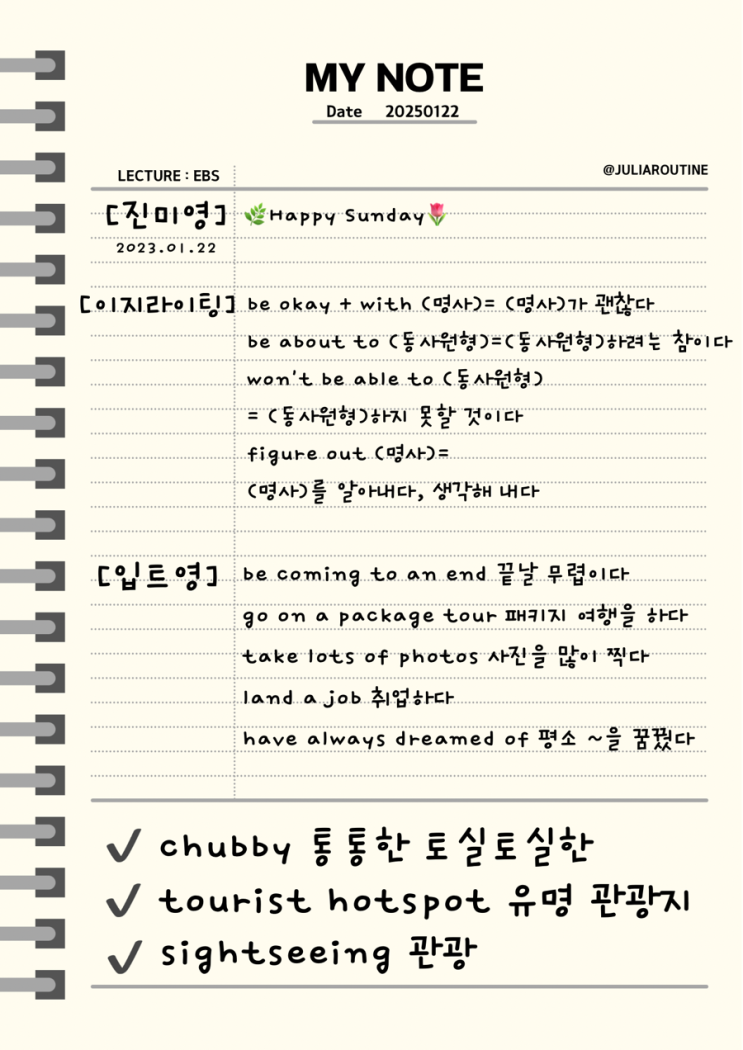 MY NOTE
Date 20250122
LECTURE : EBS
@JULIAROUTINE
[진미영] 🌿Happy Sunday🌷
2023.01.22
[이지라이팅] be okay + with (명사)= (명사)가 괜찮다
be about to (동사원형)=(동사원형)하려는 참이다
won't be able to (동사원형)
= (동사원형)하지 못할 것이다
figure out (명사)=
(명사)를 알아내다, 생각해 내다
[입트영] be coming to an end 끝날 무렵이다
go on a package tour 패키지 여행을 하다
take lots of photos 사진을 많이 찍다
land a job 취업하다
have always dreamed of 평소 ~을 꿈꿨다
✓ chubby 통통한 토실토실한
✓ tourist hotspot 유명 관광지
✓ sightseeing 관광